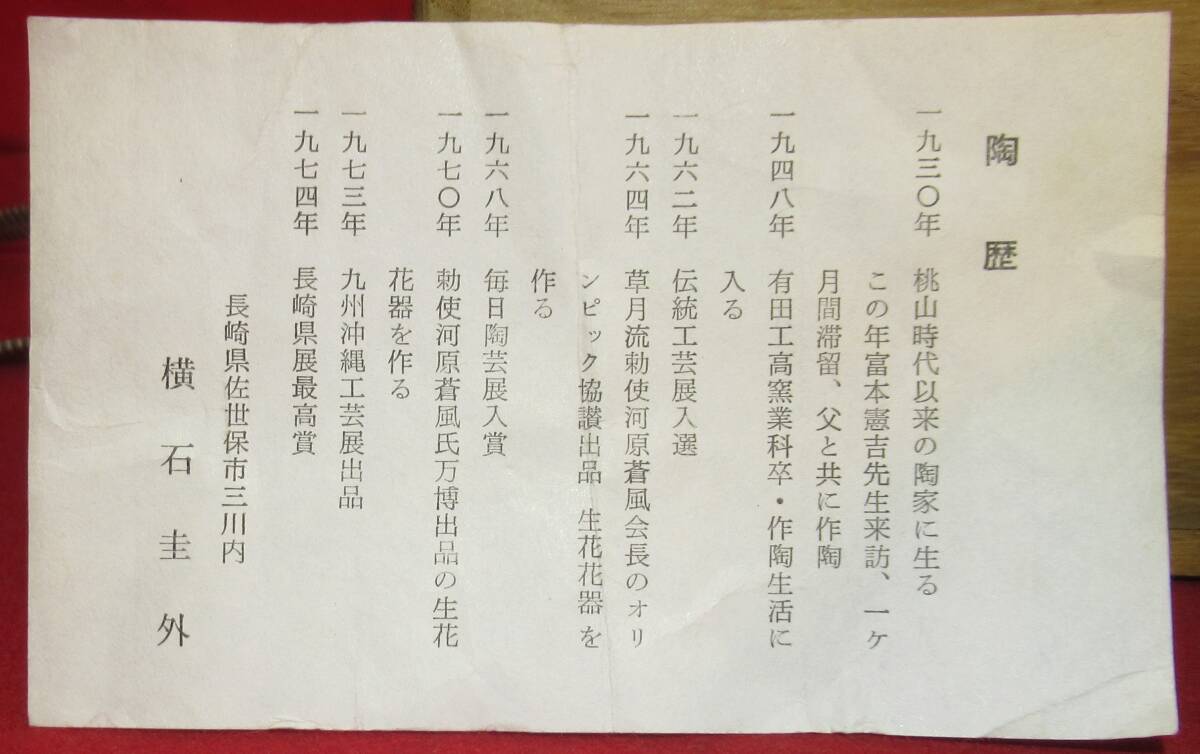 陶歴
一九三〇年 桃山時代以来の陶家に生る
この年富本憲吉先生来訪、一ケ
月間滞留、父と共に作陶
一九四八年 有田工高窯業科卒・作陶生活に
入る
一九六二年 伝統工芸展入選
一九六四年 草月流勅使河原蒼風会長のオリ
ンピック協讃出品 生花花器を
作る
一九六八年 毎日陶芸展入賞
一九七〇年 勅使河原蒼風氏万博出品の生花
花器を作る
一九七三年 九州沖縄工芸展出品
一九七四年 長崎県展最高賞
長崎県佐世保市三川内
横石圭外